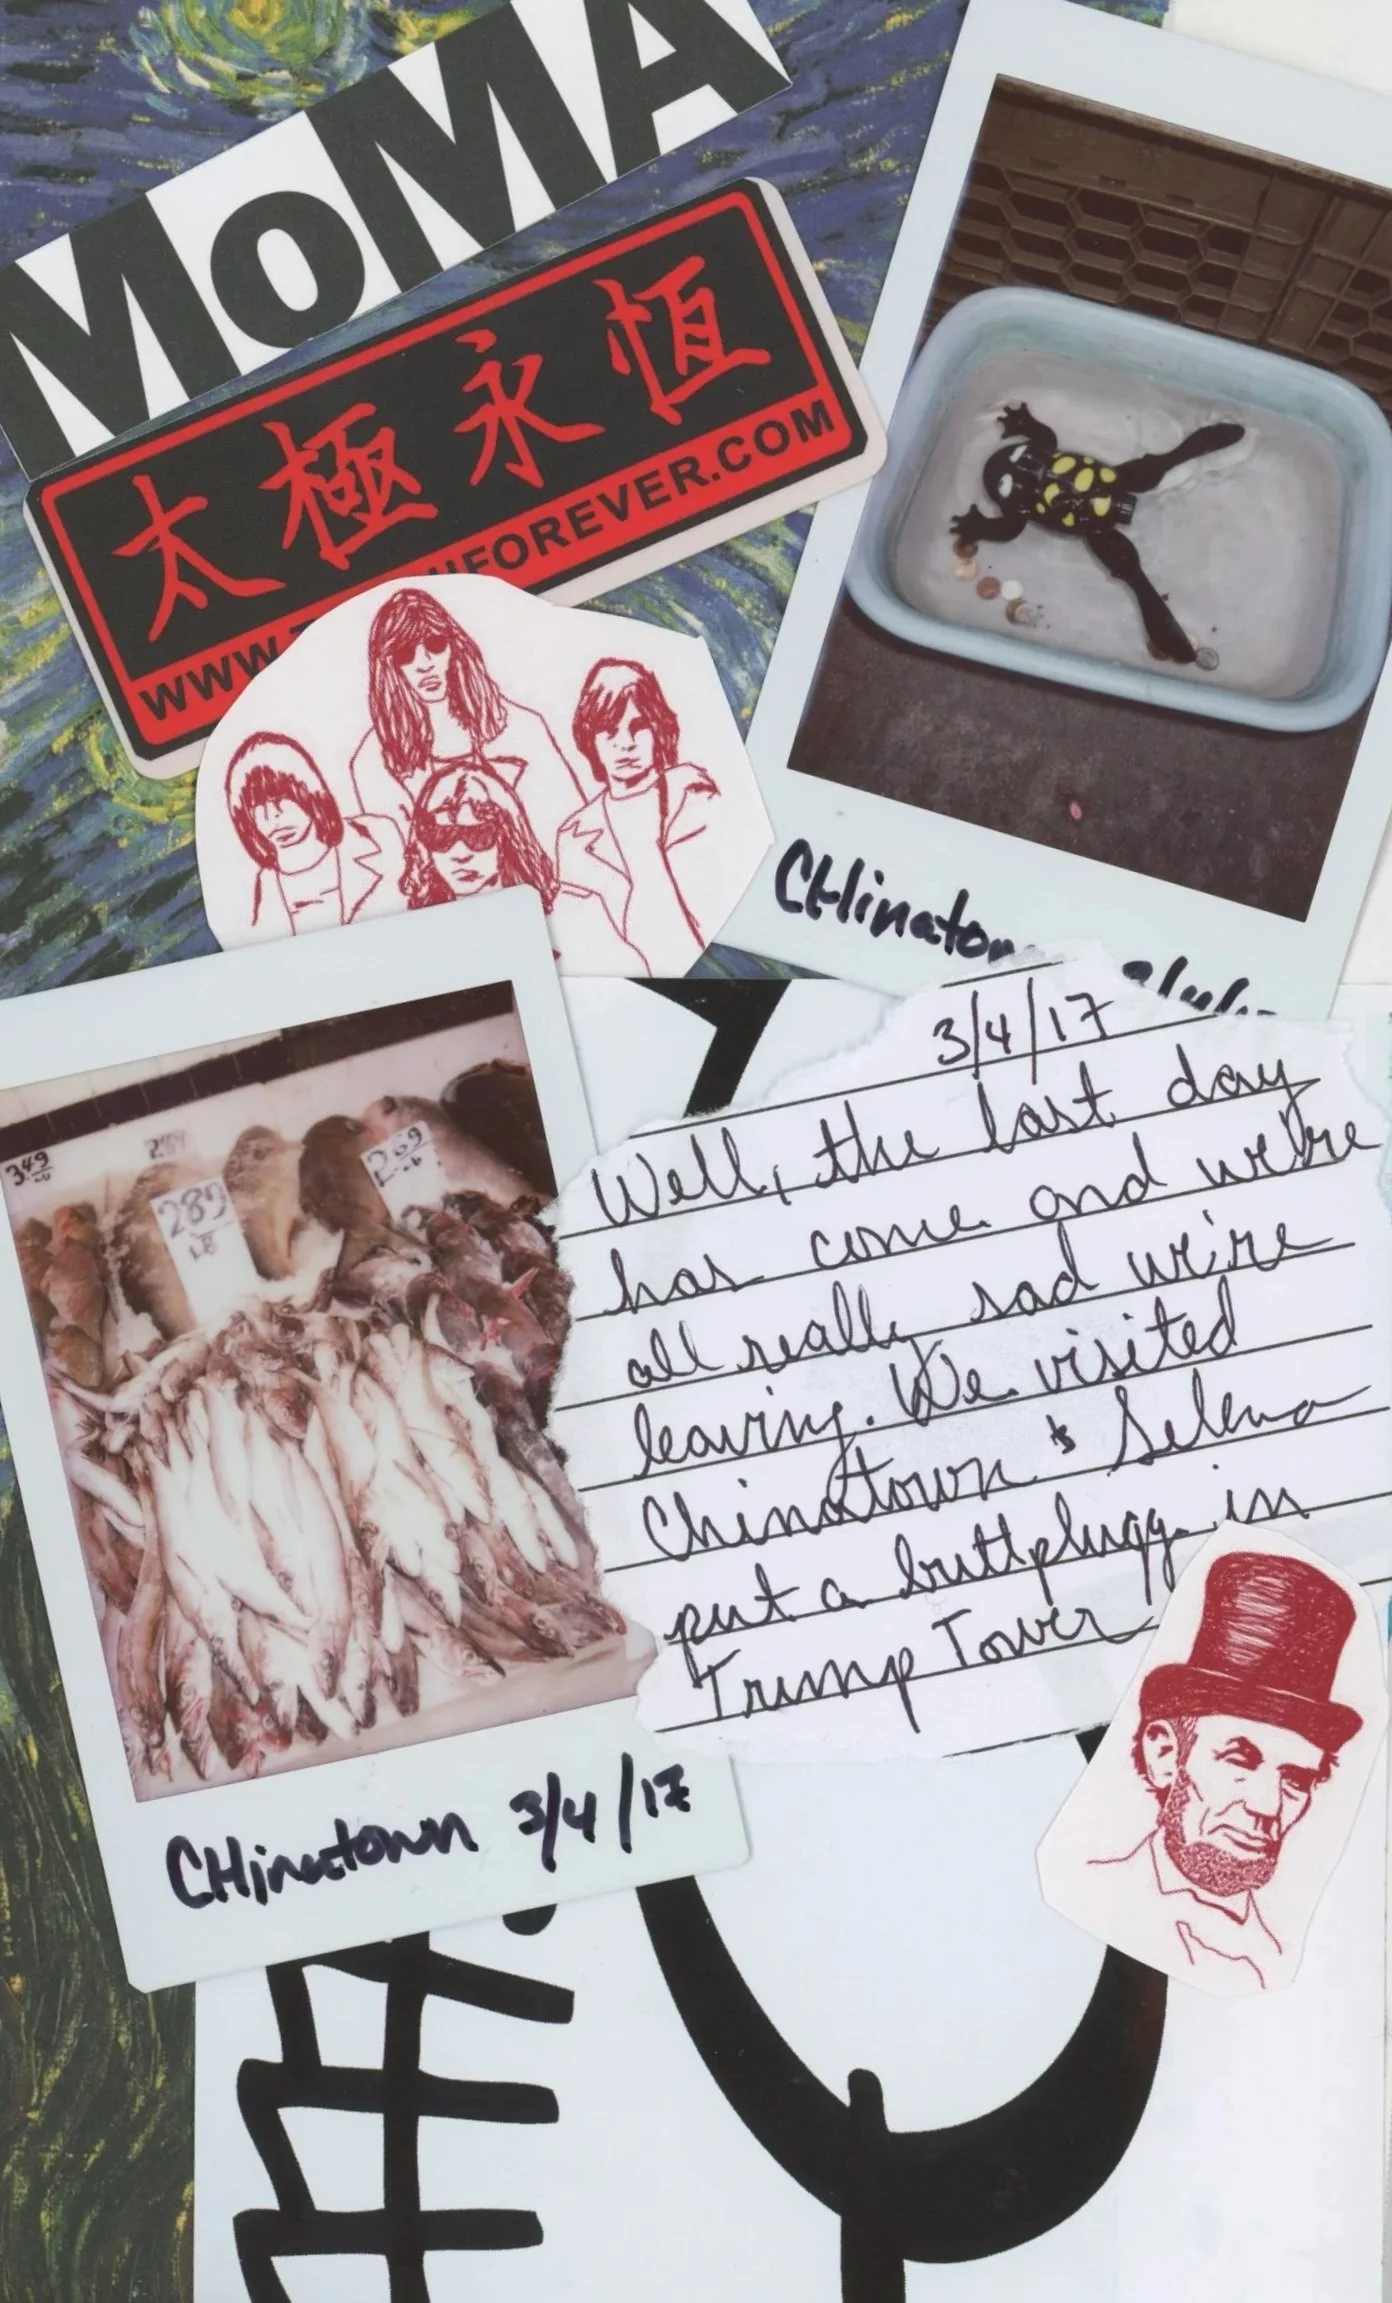 MoMA
太極永恆
WWW. FOREVER.COM
CHinatown
3/4/17
Well, the last day
has come and we're
all really sad we're
leaving. We visited
Chinatown & Selena
put a buttplugg in
Trump Tower
3.49
2.89
LB
2.69
LB
CHinatown 3/4/17